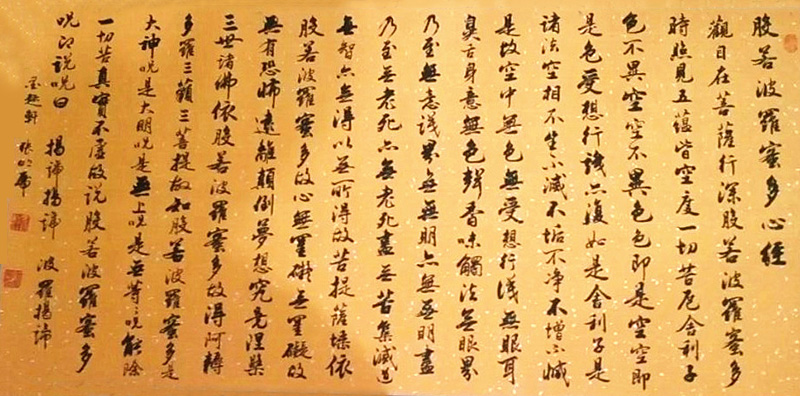 般若波羅蜜多心經
觀自在菩薩行深般若波羅蜜多
時照見五蘊皆空度一切苦厄舍利子
色不異空空不異色色即是空空即
是色受想行識亦復如是舍利子是
諸法空相不生不滅不垢不净不增不減
是故空中無色無受想行識無眼耳
鼻舌身意無色聲香味觸法無眼界
乃至無意識界無無明亦無無明盡
乃至無老死亦無老死盡無苦集滅道
無智亦無得以無所得故菩提薩埵依
般若波羅蜜多故心無罣礙無罣礙故
無有恐怖遠離顛倒夢想究竟涅槃
三世諸佛依般若波羅蜜多故得阿耨
多羅三藐三菩提故知般若波羅蜜多是
大神咒是大明咒是無上咒是無等〻咒能除
一切苦真實不虛故說般若波羅蜜多
咒即說咒曰 揭諦揭諦 波羅揭諦
墨趣軒